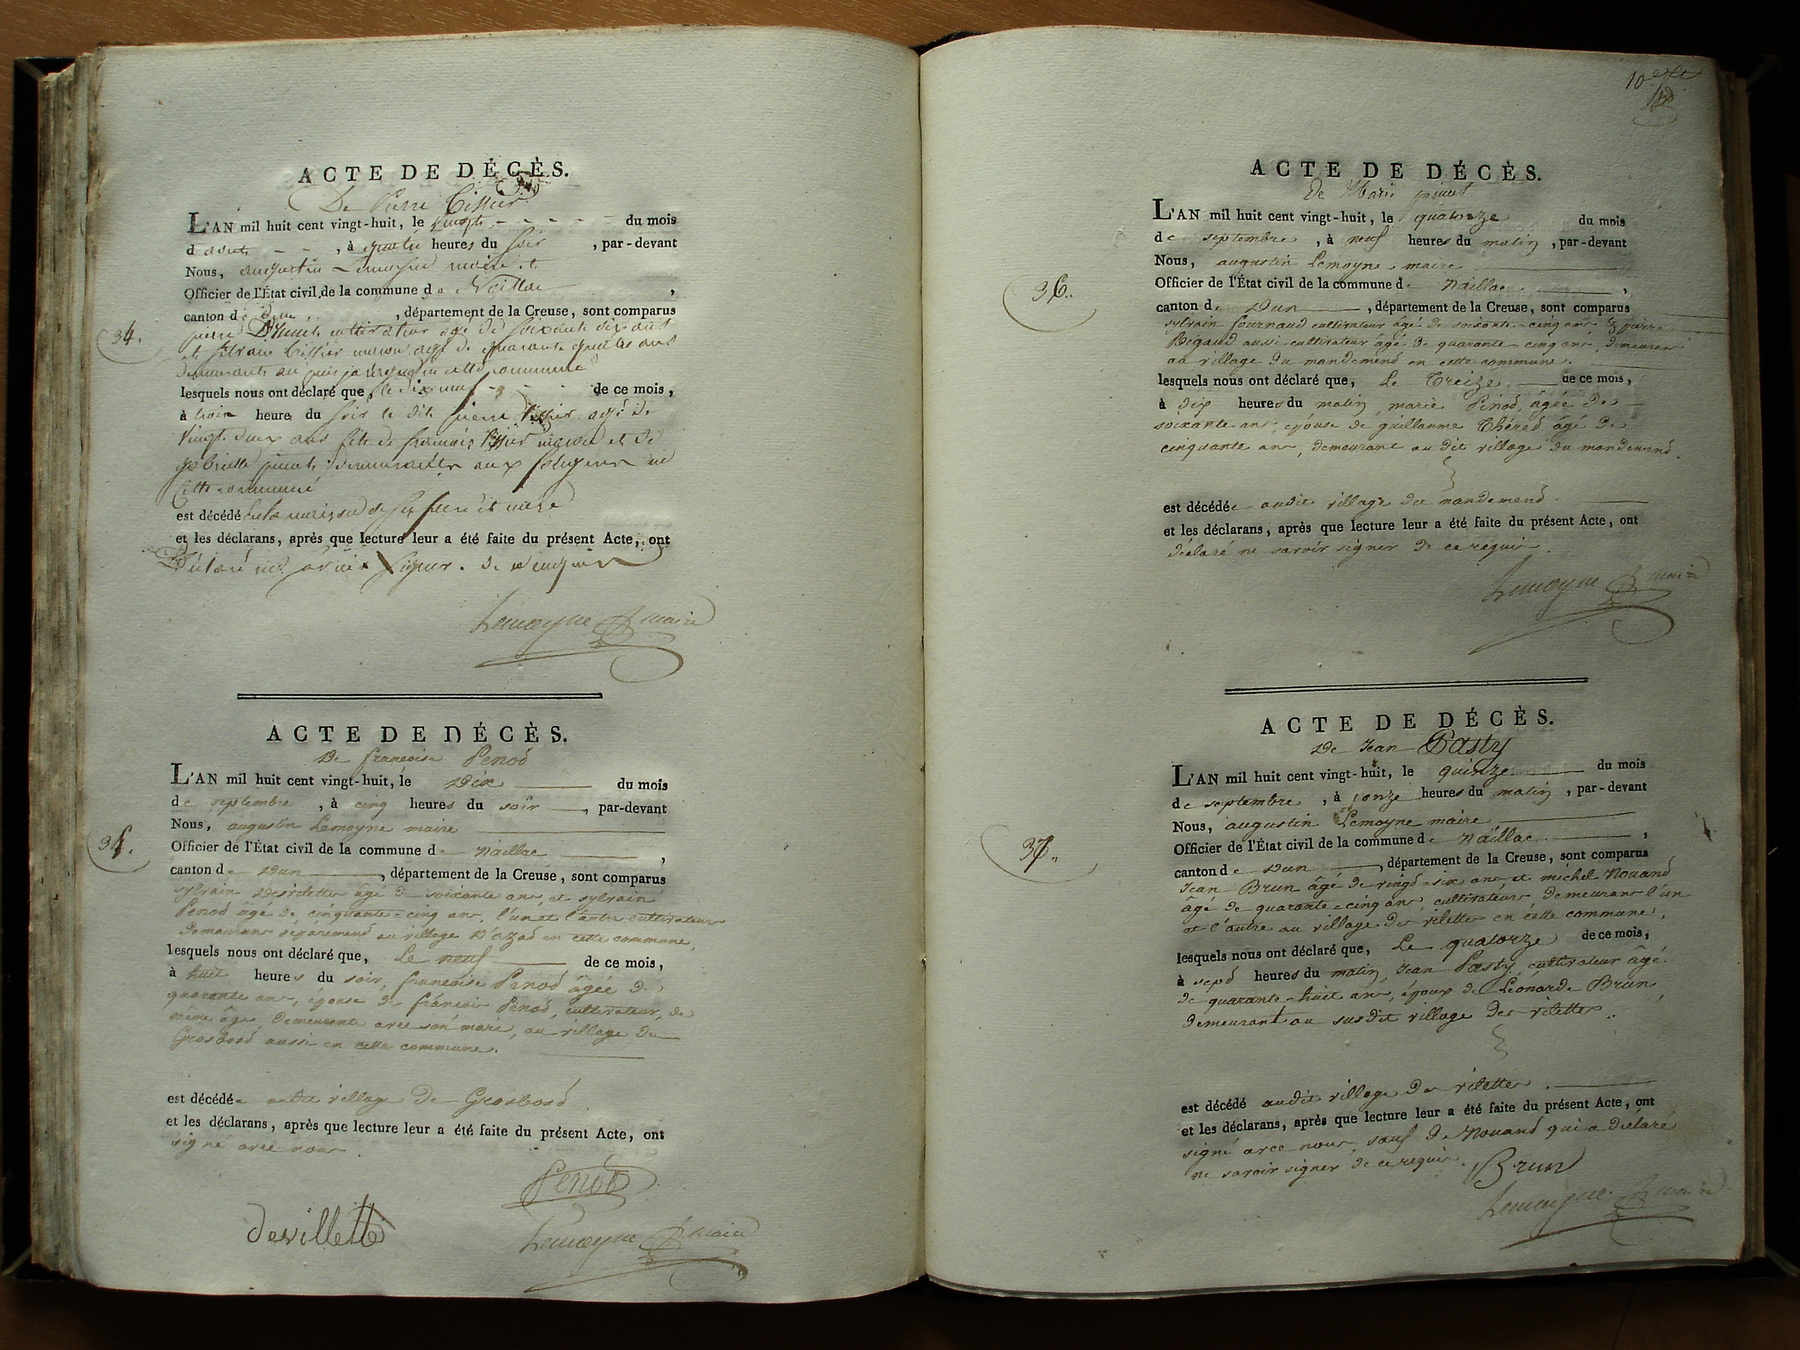 ACTE DE DÉCÈS.
De Pierre Tissier
L'AN mil huit cent vingt-huit, le vingt du mois
d'août, à quatre heures du soir, par-devant
Nous, augustin Lemoyne maire et
Officier de l'État civil de la commune de Naillac,
34.
canton de Dun, département de la Creuse, sont comparus
pierre cultivateur agé de soixante dix ans
et Silvain Tissier maçon agé de quarante quatre ans
demeurants au cette commune
lesquels nous ont déclaré que, le dix neuf de ce mois,
à trois heure du soir le dit pierre Tissier agé de
vingt deux ans fils de françois Tissier maçon et de
gabrielle demeurants aux de
Cette commune
est décédé en la maison de ses pere et mere
et les déclarans, après que lecture leur a été faite du présent Acte, ont
déclaré ne savoir signer. de ce enquis
Lemoyne maire
ACTE DE DÉCÈS.
De françoise Penod
L'AN mil huit cent vingt-huit, le Dix du mois
de septembre, à cinq heures du soir, par-devant
Nous, augustin Lemoyne maire
35.
Officier de l'État civil de la commune de Naillac,
canton de Dun, département de la Creuse, sont comparus
sylvain Desvilettes âgé de soixante ans, et sylvain
Penod âgé de cinquante-cinq ans, l'un et l'autre cultivateurs
demeurans séparément au village D'azad en cette commune,
lesquels nous ont déclaré que, Le neuf de ce mois,
à huit heures du soir, françoise Penod âgée de
quarante ans, épouse de françois Penod, cultivateur, de
même âge, demeurante avec son mari, au village de
Grosbost aussi en cette commune.
est décédée audit village de Grosbost
et les déclarans, après que lecture leur a été faite du présent Acte, ont
signé avec nous.
Penod
devillette
Lemoyne maire
10
ACTE DE DÉCÈS.
De Marie
L'AN mil huit cent vingt-huit, le quatorze du mois
de septembre, à neuf heures du matin, par-devant
Nous, augustin Lemoyne maire
36.
Officier de l'État civil de la commune de Naillac,
canton de Dun, département de la Creuse, sont comparus
sylvain fournaud cultivateur âgé de soixante-cinq ans et pierre
Rigaud aussi cultivateur âgé de quarante-cinq ans, demeurans
au village du mandement en cette commune.
lesquels nous ont déclaré que, Le Treize de ce mois,
à dix heures du matin, marie Penod, âgée de
soixante ans, épouse de guillaume Théred âgé de
cinquante ans, demeurant au dit village du mandemend.
est décédée audit village du mandemend.
et les déclarans, après que lecture leur a été faite du présent Acte, ont
déclaré ne savoir signer de ce requis.
Lemoyne maire
ACTE DE DÉCÈS.
De Jean Pasty
L'AN mil huit cent vingt-huit, le quinze du mois
de septembre, à onze heures du matin, par-devant
Nous, augustin Lemoyne maire
37.
Officier de l'État civil de la commune de Naillac,
canton de Dun, département de la Creuse, sont comparus
Jean Brun âgé de vingt-six ans et michel Nouand
âgé de quarante-cinq ans, cultivateurs, demeurans l'un
et l'autre au village des vilettes en cette commune,
lesquels nous ont déclaré que, Le quatorze de ce mois,
à sept heures du matin, Jean Pasty, cultivateur âgé
de quarante-huit ans, époux de Léonarde Brun,
demeurant au susdit village des vilettes.
est décédé audit village des vilettes.
et les déclarans, après que lecture leur a été faite du présent Acte, ont
signé avec nous, sauf de Nouand qui a déclaré
ne savoir signer de ce requis. Brun
Lemoyne maire